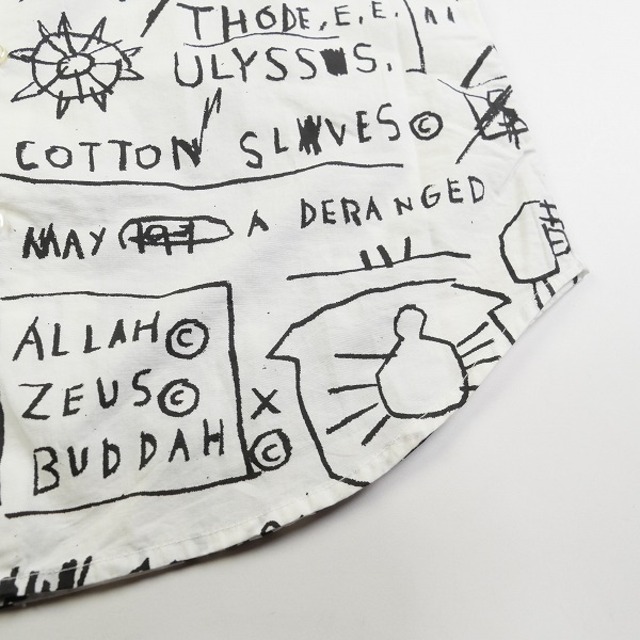 THODE, E. E.
ULYSSES.
COTTON SLAVES ©
MAY 1951 A DERANGED
ALLAH ©
ZEUS ©
X
BUDDAH ©